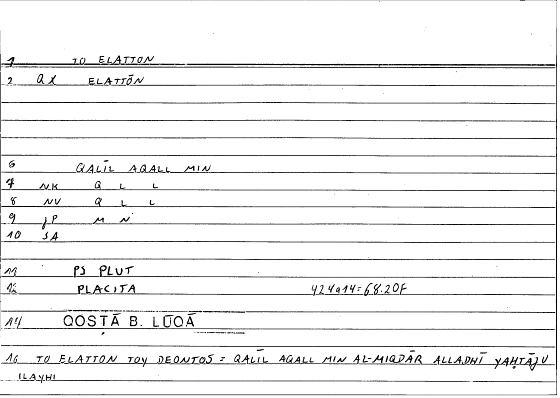 1 TO ELATTON
2 QX ELATTŌN
6 QALĪL AQALL MIN
7 NK Q L L
8 NV Q L L
9 JP M N
10 SA
11 PS PLUT
12 PLACITA 424a14=68.20f
14 QOSṬĀ B. LŪQĀ
16 TO ELATTON TOY DEONTOS = QALĪL AQALL MIN AL-MIQDĀR ALLADHĪ YAḤTĀJU
ILAYHI